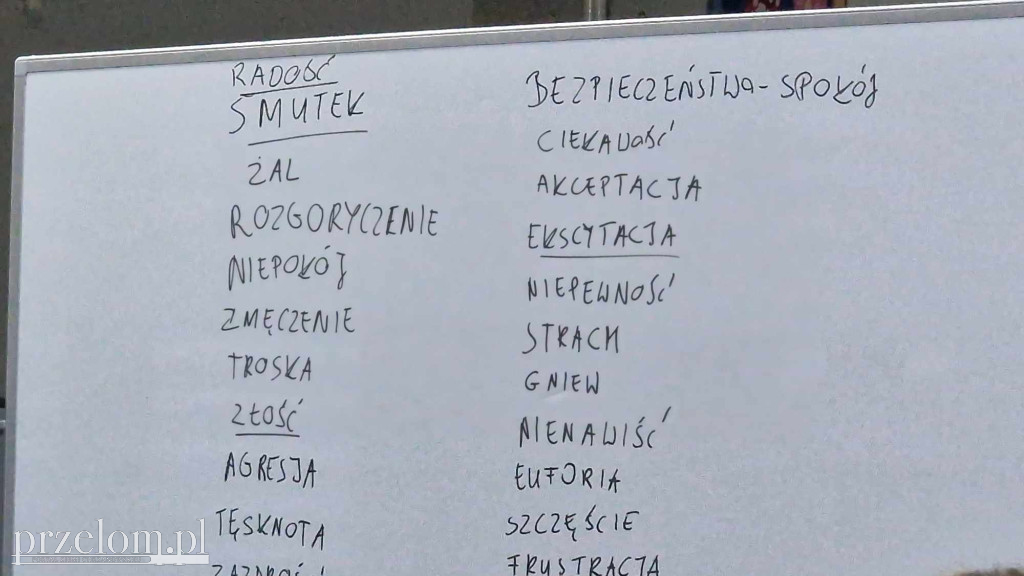 RADOŚĆ
SMUTEK
ŻAL
ROZGORYCZENIE
NIEPOKÓJ
ZMĘCZENIE
TROSKA
ZŁOŚĆ
AGRESJA
TĘSKNOTA
BEZPIECZEŃSTWA - SPOKÓJ
CIEKAWOŚĆ
AKCEPTACJA
EKSCYTACJA
NIEPEWNOŚĆ
STRACH
GNIEW
NIENAWIŚĆ
EUFORIA
SZCZĘŚCIE
FRUSTRACJA
przelom.pl